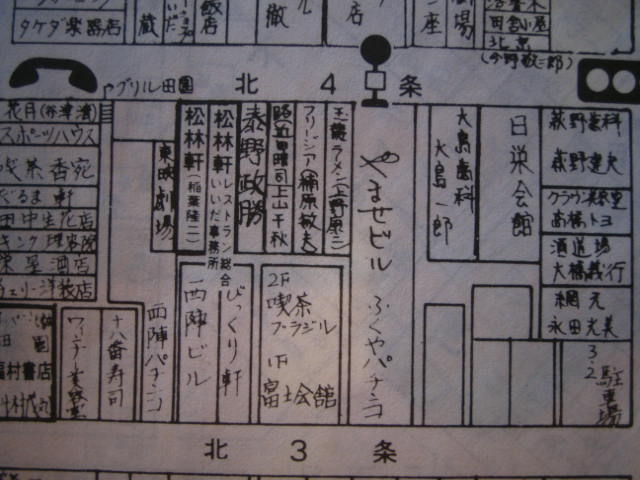 タケダ楽器店
蔵
飯店
徹
ル
店
座
劇場
田舎小屋
北京
(今野敏三郎)
グリル田園
北4条
花月
スポーツハウス
喫茶香宛
だるま軒
田中生花店
キング理容院
栄星酒店
東映劇場
松林軒(稲葉隆二)
松林軒レストラン総合
いいだ事務所
泰野政勝
上山千秋
フリージア(楠原敏夫)
玉葉ラーメン(上野原三)
やませビル
ふくやパチンコ
大島歯科
大島一郎
日栄会館
萩野歯科
萩野達夫
クラウン美容室
高橋トヨ
酒道場
大橋義行
網元
永田光美
福村書店
十八番寿司
西陣パチンコ
西陣ビル
びっくり軒
2F
喫茶
ブラジル
1F
富士会館
3.2駐車場
北3条